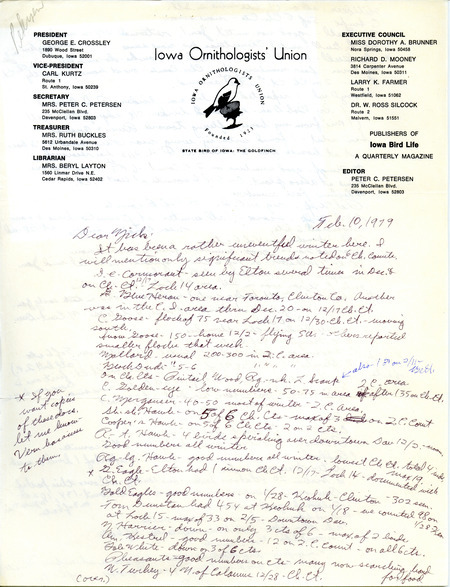 PRESIDENT
GEORGE E. CROSSLEY
1890 Wood Street
Dubuque, Iowa 52001
VICE-PRESIDENT
CARL KURTZ
Route 1
St. Anthony, Iowa 50239
SECRETARY
MRS. PETER C. PETERSEN
235 McClellan Blvd.
Davenport, Iowa 52803
TREASURER
MRS. RUTH BUCKLES
5612 Urbandale Avenue
Des Moines, Iowa 50310
LIBRARIAN
MRS. BERYL LAYTON
1560 Linmar Drive N.E.
Cedar Rapids, Iowa 52402
Iowa Ornithologists' Union
IOWA ORNITHOLOGISTS UNION
Founded 1923
STATE BIRD OF IOWA: THE GOLDFINCH
EXECUTIVE COUNCIL
MISS DOROTHY A. BRUNNER
Nora Springs, Iowa 50458
RICHARD D. MOONEY
3814 Carpenter Avenue
Des Moines, Iowa 50311
LARRY K. FARMER
Route 1
Westfield, Iowa 51062
DR. W. ROSS SILCOCK
Route 2
Malvern, Iowa 51551
PUBLISHERS OF
Iowa Bird Life
A QUARTERLY MAGAZINE
EDITOR
PETER C. PETERSEN
235 McClellan Blvd.
Davenport, Iowa 52803
Feb. 10, 1979
Dear Nick:
It has been a rather uneventful winter here. I
will mention only significant trends noted on Ch. Counts.
Cormorant - seen by Elton several times in Dec. &
on Ch. Ct. 12/17 Lock 14 area.
G. Blue Heron - one near Toronto, Clinton Co. Another
was in the C. I. area thru Dec. 20 - on 12/17 Ch. Ct.
C. Goose - flock of 75 near Lock 17 on 12/30 Ch. Ct. - moving
south.
Snow Goose - 150 - home 12/3 - flying SW - reported
smaller flocks that week.
Mallard - usual 200-300 in Q.C. area.
Black Duck " 5-6 " " "
On Ch. Cts - Pintail, Wood, Rg-nk, L. Scaup
C. Golden-eye - low numbers - 50-75 in area after 135 on Ch. Ct.
C. Merganser - 40-50 most of winter - Q.C. Area
Sh. sh. Hawk - on 5 of 6 Ch. Cts - max of 3 on Q.C. Count
Cooper's Hawk - on 5 of 6 Ch Cts - 2 on 2 cts.
Good numbers all winter
Rg. lg. Hawk - good numbers all winter - lowest Ch. Ct. total 4, max 19
* G. Eagle - Elton had 1 imm on Ch Ct. 12/17 - Lock 14 - documented with
Ch. Ct.
Bald Eagles - good numbers - on 1/28 - Keokuk-Clinton - 302 seen.
Tom Dunstan had 454 at Keokuk on 1/18 - we counted 98 on
at Lock 15 - max of 33 on 2/5 - Downtown Dav.
N. Harrier - down - on only 3 cts of 6 - max of 2 birds
Am. Kestrel - good numbers - 12 on Q.C. Count - on all 6 cts.
Bobwhite - down on 3 of 6 cts
Pheasants - good numbers on cts - many now searching hard
for food.
N. Turkey - 4 N. of Columbus 12/28 - Ch. Ct.
(over)
* If you
want copies
of these docs.
let me know.
Vern has some
to them.